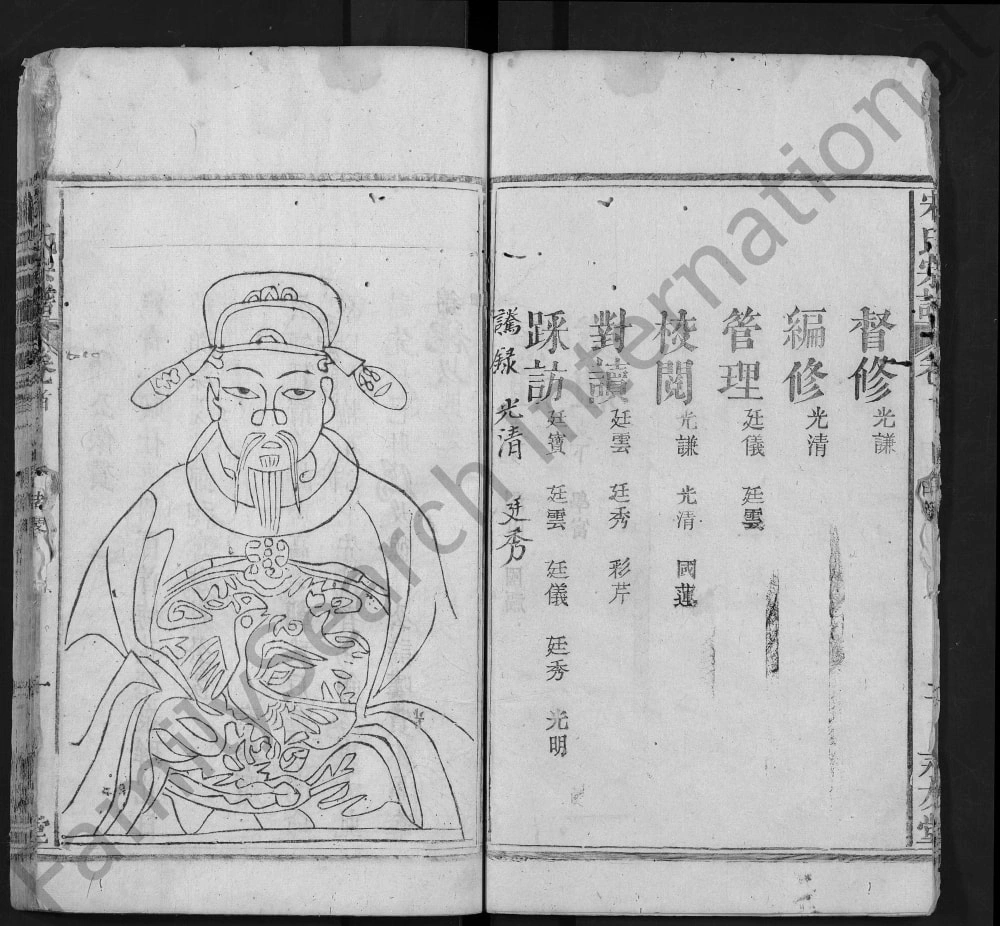 宋氏宗譜
督修 光謙
編修 光清
管理 廷儀 廷雲
校閱 光謙 光清 國蓮
對讀 廷雲 廷秀 彩芹
踩訪 廷賓 廷雲 廷儀 廷秀 光明
謄録 光清 廷秀
堂
FamilySearch International